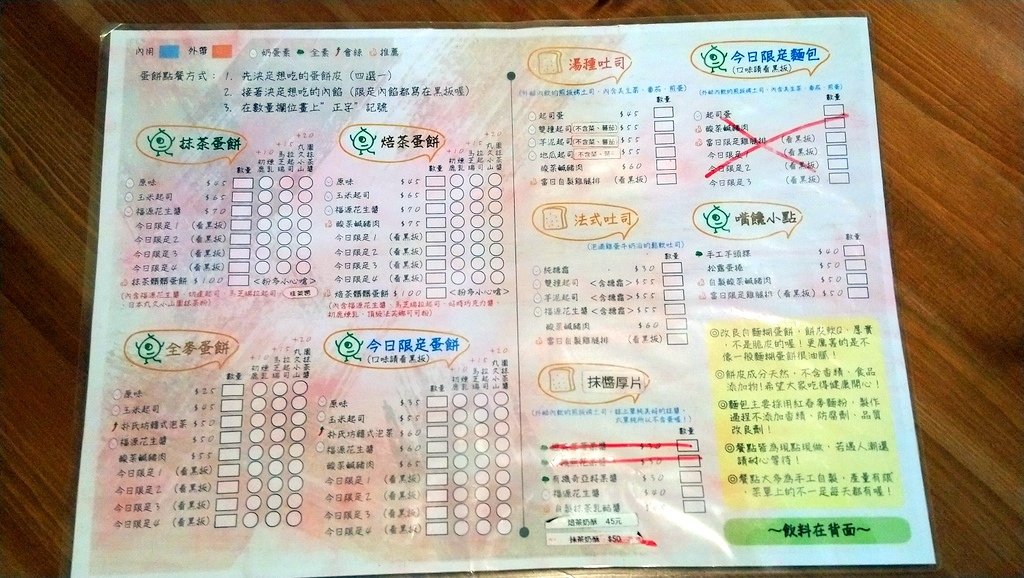 內用 外帶 奶蛋素 全素 會辣 推薦
蛋餅點餐方式：1. 先決定想吃的蛋餅皮（四選一）
2. 接著決定想吃的內餡（限定內餡都寫在黑板喔）
3. 在數量欄位畫上"正字"記號
抹茶蛋餅
+20
數量
原味 $45
玉米起司 $65
福源花生醬 $70
酸菜鹹豬肉 $75
今日限定1（看黑板）
今日限定2（看黑板）
今日限定3（看黑板）
今日限定4（看黑板）
抹茶麵麵蛋餅 $100 <粉多小心嗆>
焙茶蛋餅
+20
數量
原味 $45
玉米起司 $65
福源花生醬 $70
酸菜鹹豬肉 $75
今日限定1（看黑板）
今日限定2（看黑板）
今日限定3（看黑板）
今日限定4（看黑板）
焙茶麵麵蛋餅 $100 <粉多小心嗆>
全麥蛋餅
+20
數量
原味 $25
玉米起司 $45
朴氏坊韓式泡菜 $50
福源花生醬 $50
酸菜鹹豬肉 $55
今日限定1（看黑板）
今日限定2（看黑板）
今日限定3（看黑板）
今日限定4（看黑板）
今日限定蛋餅
（口味請看黑板）
+20
數量
原味 $35
玉米起司 $55
朴氏坊韓式泡菜 $60
福源花生醬 $60
酸菜鹹豬肉 $65
今日限定1（看黑板）
今日限定2（看黑板）
今日限定3（看黑板）
今日限定4（看黑板）
湯種吐司
數量
起司蛋 $45
雙種起司 $55
芋泥起司 $55
地瓜起司 $55
酸菜鹹豬肉 $60
當日自製雞腿排（看黑板）
法式吐司
（泡過雞蛋牛奶浴的鬆軟吐司）
數量
純糖霜 $30
雙種起司 <含糖霜> $55
芋泥起司 <含糖霜> $55
福源花生醬 <含糖霜> $55
酸菜鹹豬肉 $60
當日自製雞腿排（看黑板）
抹醬厚片
數量
有機奇亞籽果醬 $50
福源花生醬 $40
自製抹茶乳酪醬 $50
焙茶奶酥 45元
抹茶奶酥 $50
今日限定麵包
（口味請看黑板）
數量
起司蛋
酸菜鹹豬肉
當日限定雞腿排（看黑板）
今日限定1（看黑板）
今日限定2（看黑板）
今日限定3（看黑板）
嘴饞小點
數量
手工芋頭粿 $40
松露蛋燒 $50
自製酸菜鹹豬肉 $50
當日限定雞腿排（看黑板）$50
◎改良自麵糊蛋餅，餅皮軟Q、厚實，
不是脆皮的喔！更厲害的是不
像一般麵糊蛋餅很油膩！
◎餅皮成分天然，不含香精、食品
添加物！希望大家吃得健康開心！
◎麵包主要採用紅春麥麵粉，製作
過程不添加香精、防腐劑、品質
改良劑！
◎餐點皆為現點現做，若遇人潮還
請耐心等待！
◎餐點大多為手工自製，產量有限
，菜單上的不一定每天都有喔！
～飲料在背面～